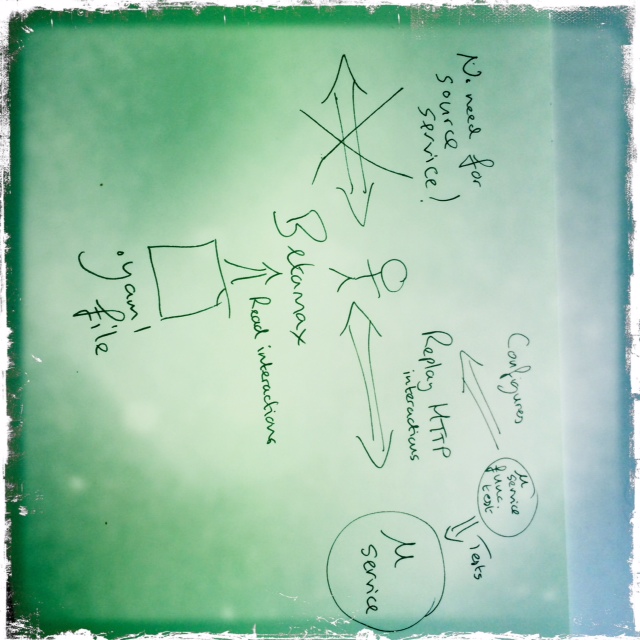 Configures
μ
service
func.
test
Tests
No need for
source
service!
Replay HTTP
interactions
μ
service
Betamax
Read interactions
.yaml
file